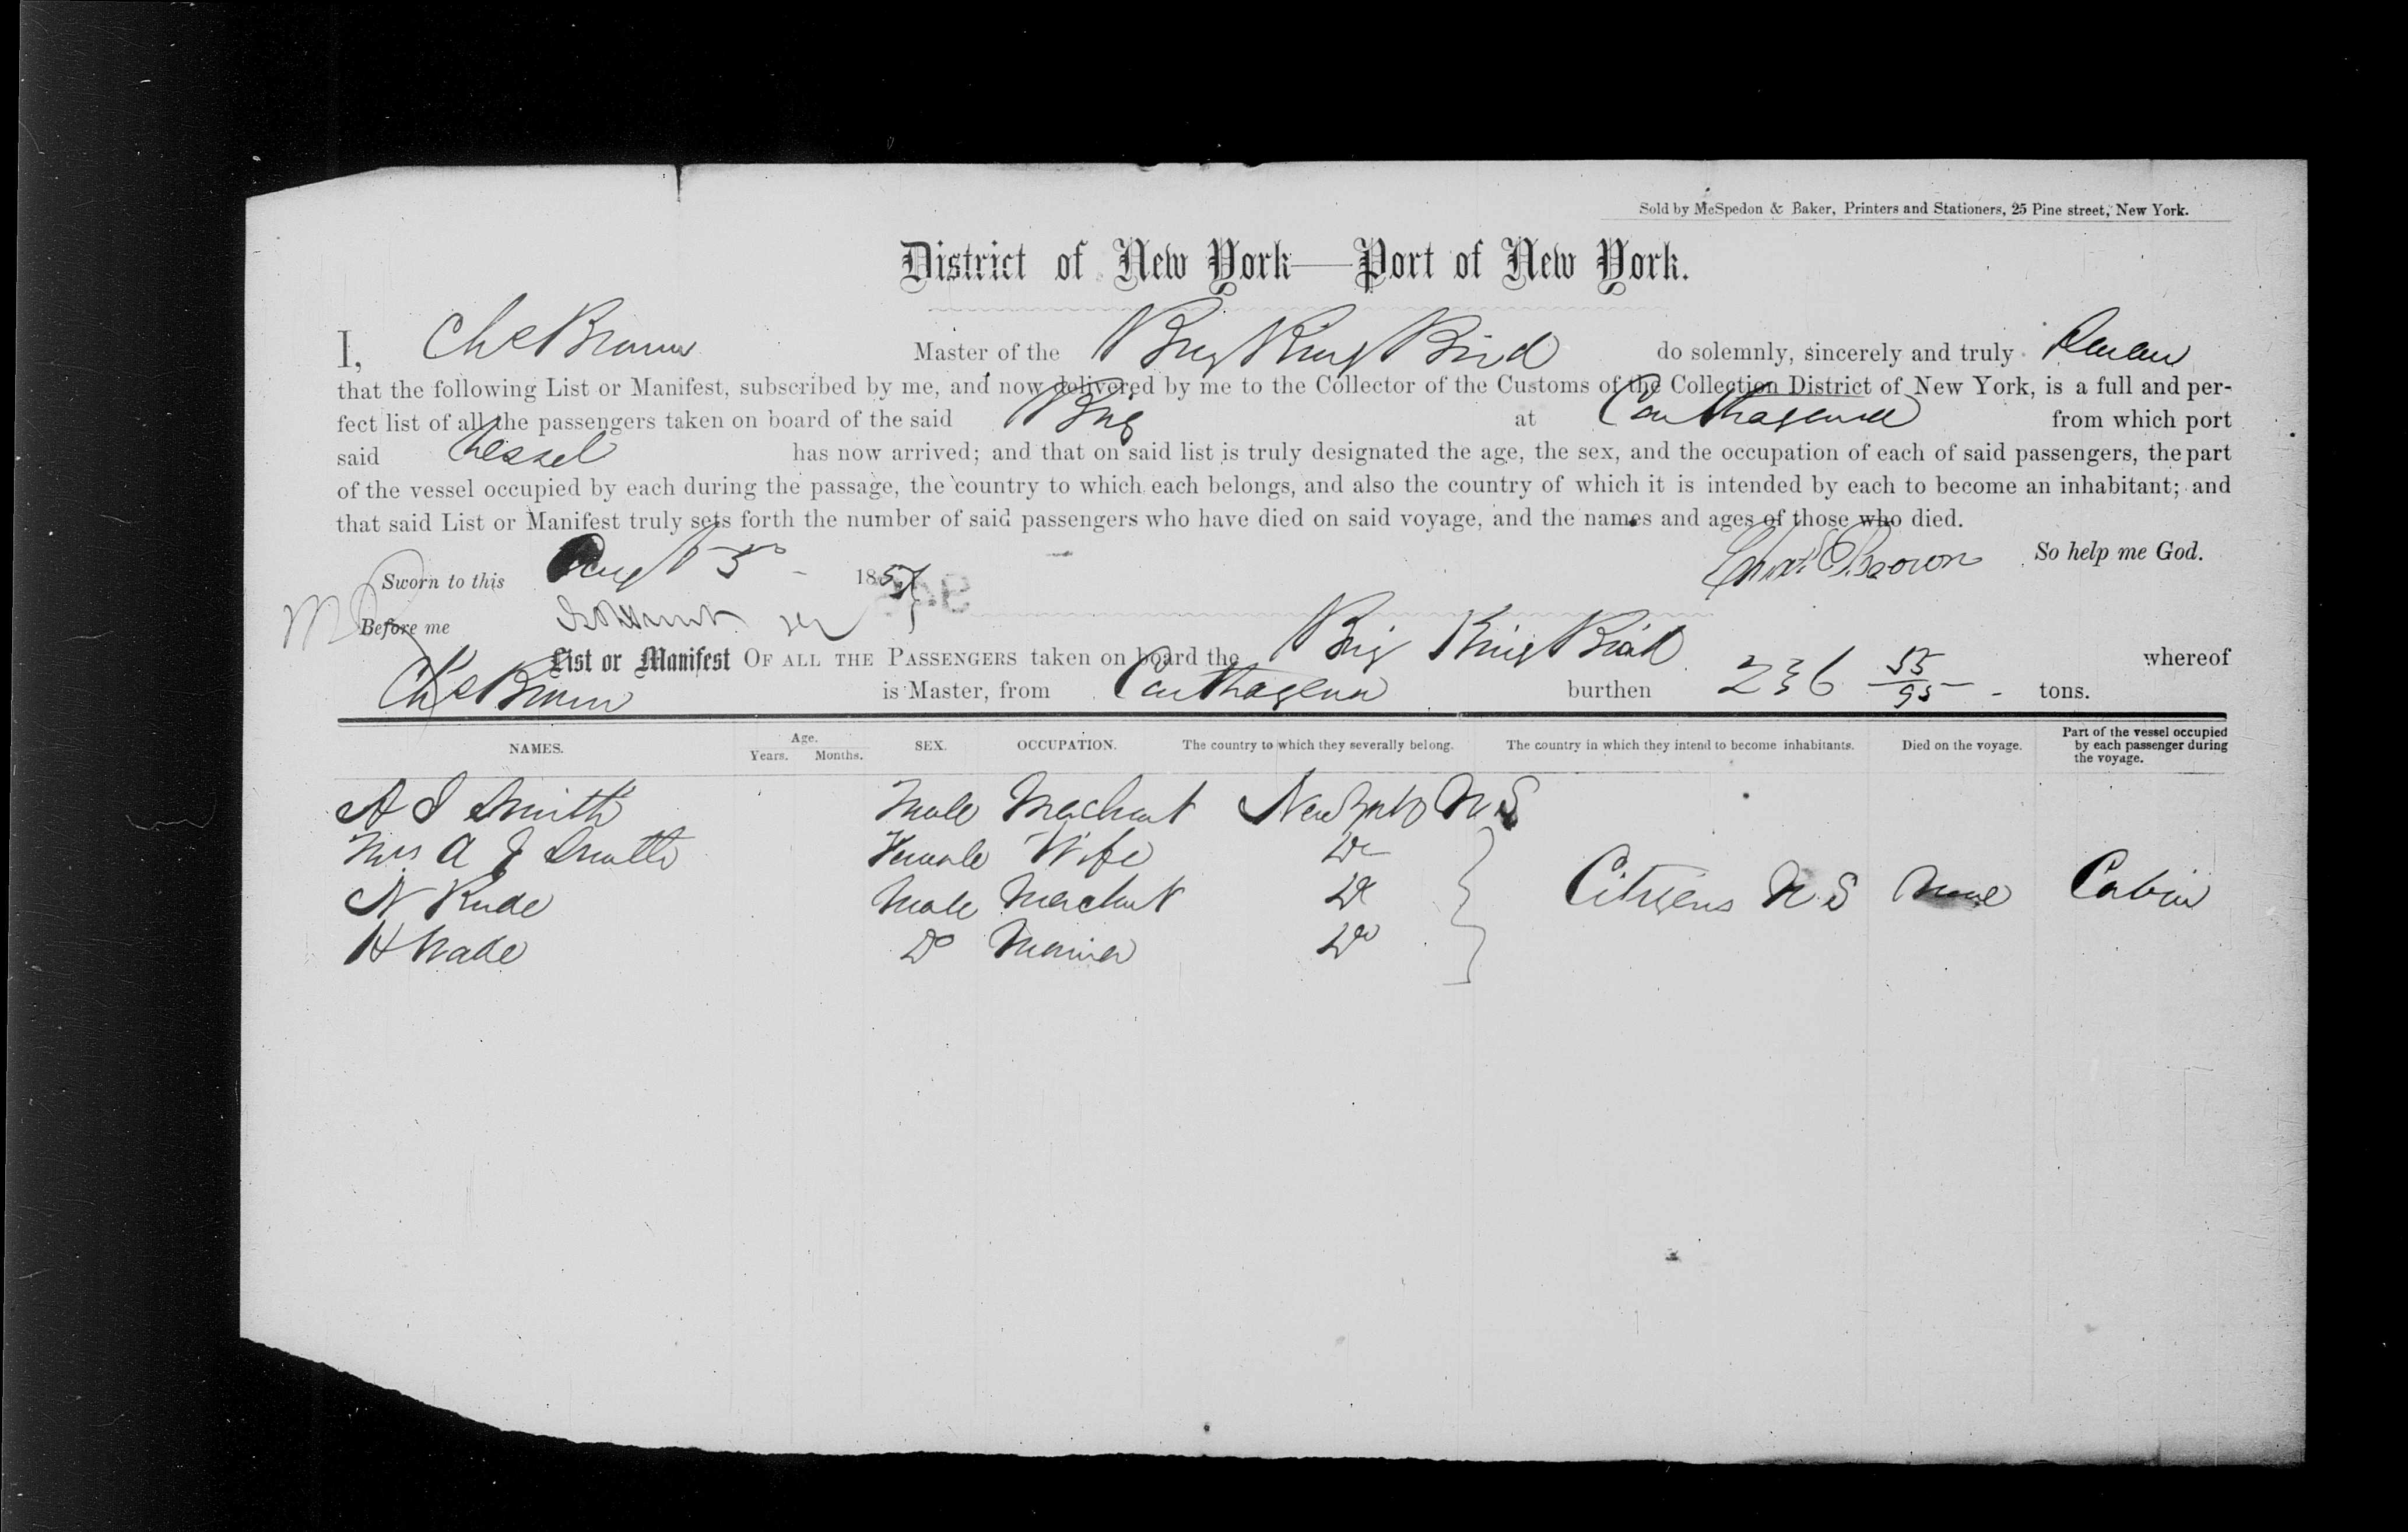 Sold by McSpedon & Baker, Printers and Stationers, 25 Pine street, New York.
District of New York—Port of New York.
I, Chs Brown Master of the Brig King Bird do solemnly, sincerely and truly
that the following List or Manifest, subscribed by me, and now delivered by me to the Collector of the Customs of the Collection District of New York, is a full and per-
fect list of all the passengers taken on board of the said Brig at Carthagena from which port
said Vessel has now arrived; and that on said list is truly designated the age, the sex, and the occupation of each of said passengers, the part
of the vessel occupied by each during the passage, the country to which each belongs, and also the country of which it is intended by each to become an inhabitant; and
that said List or Manifest truly sets forth the number of said passengers who have died on said voyage, and the names and ages of those who died.
Sworn to this Augt 5 1857 Brown So help me God.
Before me
List or Manifest OF ALL THE PASSENGERS taken on board the Brig King Bird whereof
Chs Brown is Master, from Carthagena burthen 236 55/95 tons.
NAMES. Age. Years. Months. SEX. OCCUPATION. The country to which they severally belong. The country in which they intend to become inhabitants. Died on the voyage. Part of the vessel occupied by each passenger during the voyage.
A J Smith Male Merchant New York U S
Mrs A J Smith Female Wife Do
N Rude Male Merchant Do Citizens U S None Cabin
H Wade Do Mariner Do